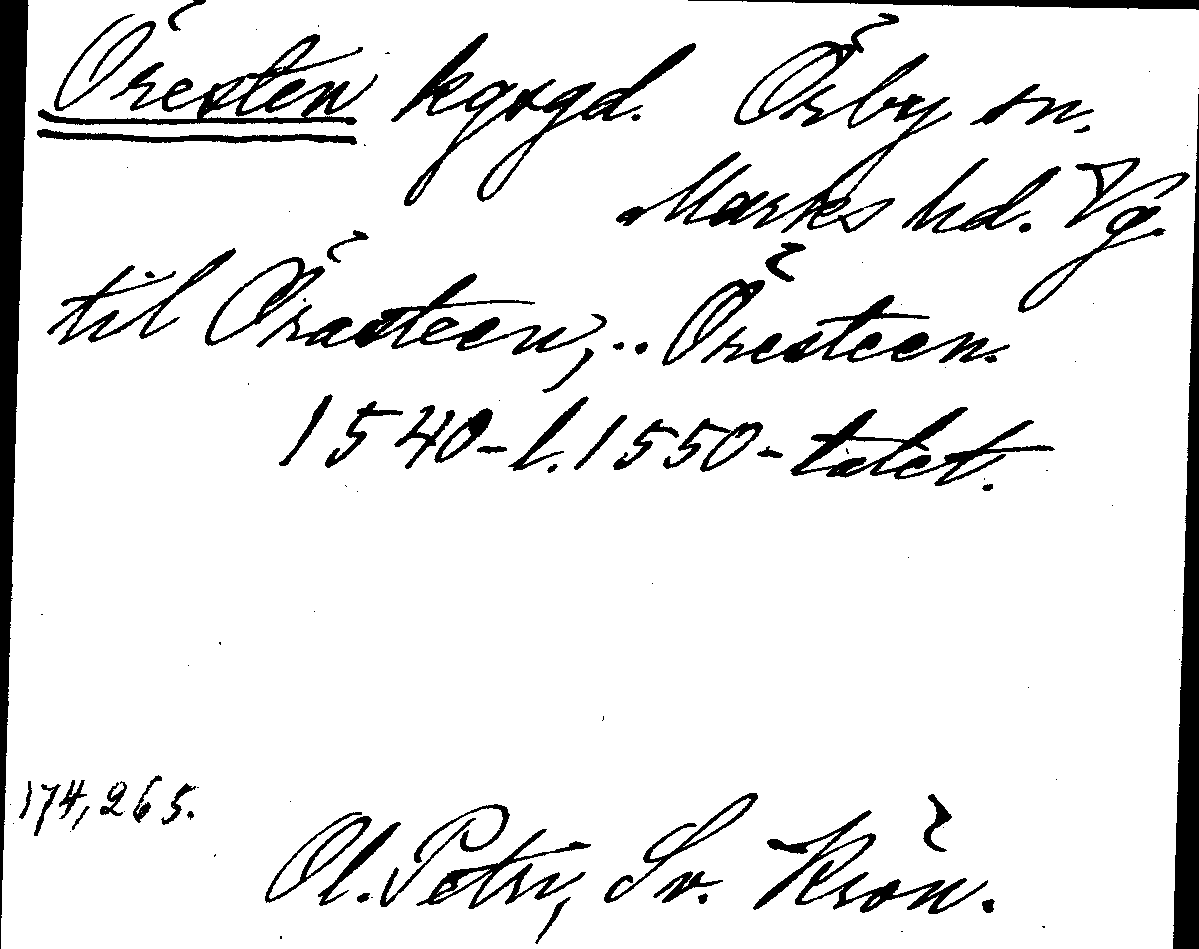 Öresten kgsgd. Örby sn.
Marks hd. Vg.
til Örasteen, .. Öresteen.
1540-l. 1550-talet.
174, 265.
Ol. Petri, Sv. Krön.